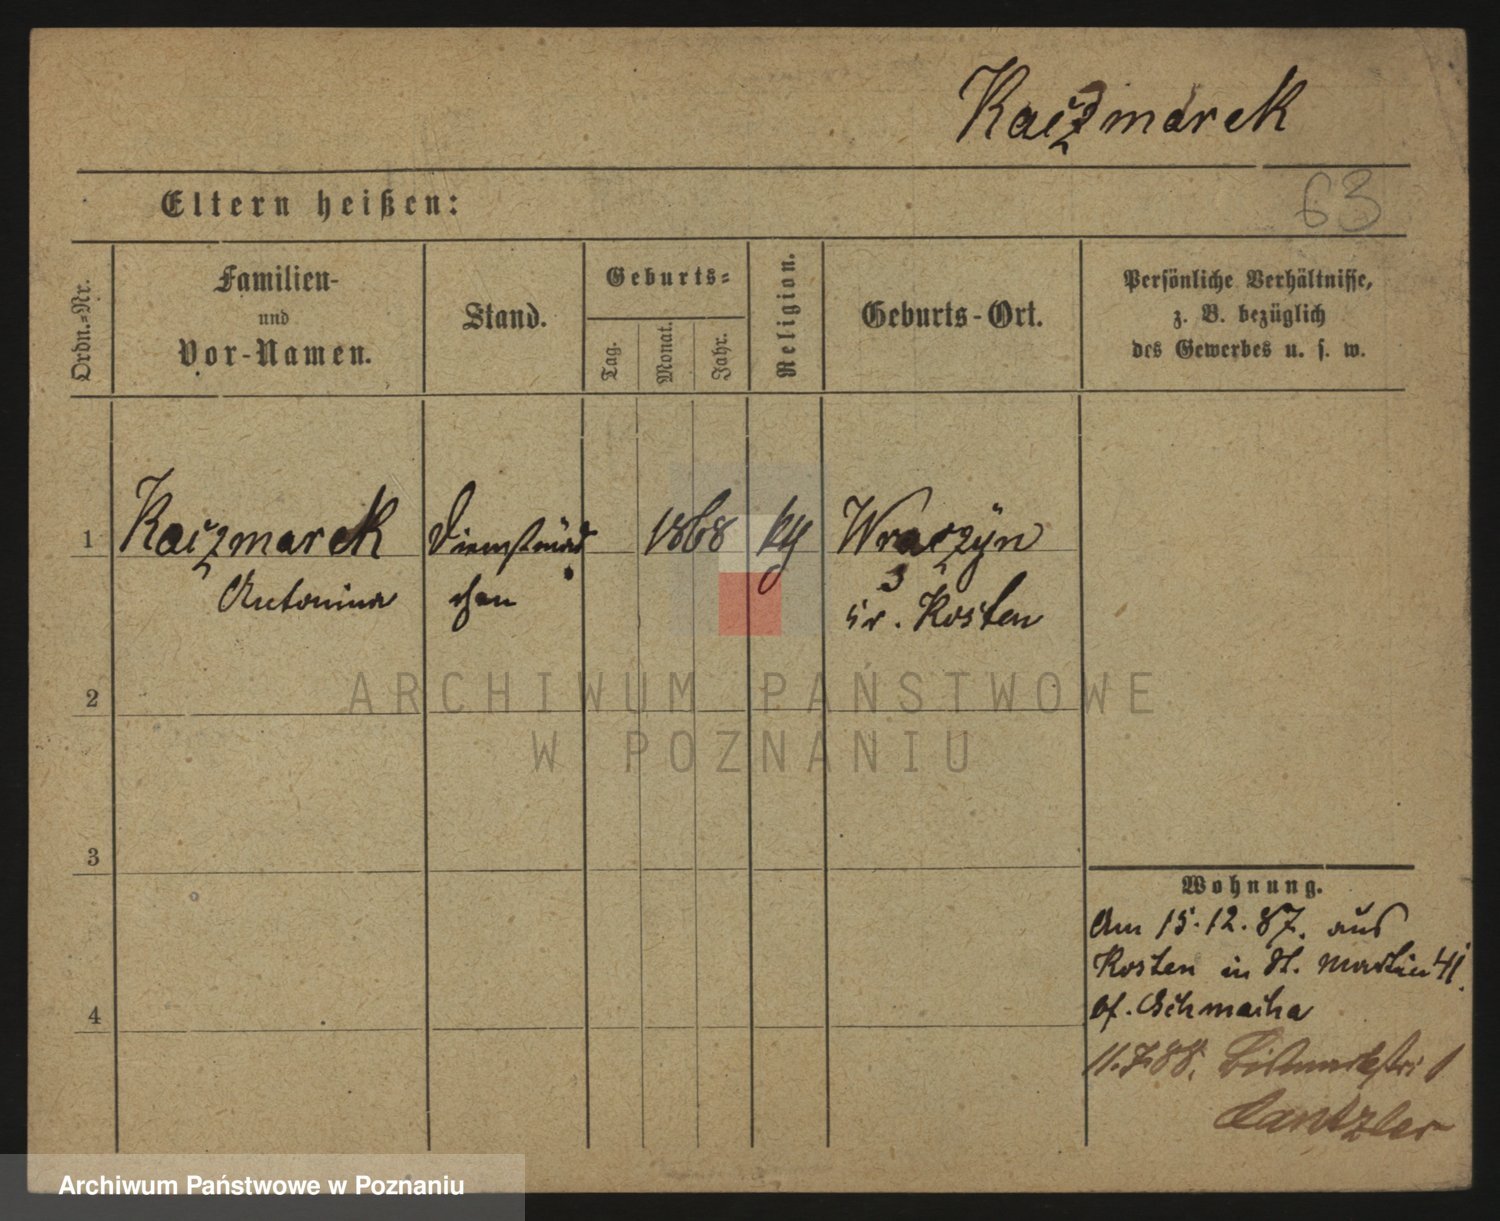 Kaczmarek
Eltern heißen:
63
Ordn.-Nr.
Familien-
und
Vor-Namen.
Stand.
Geburts-
Tag.
Monat.
Jahr.
Religion.
Geburts-Ort.
Persönliche Verhältnisse,
z. B. bezüglich
des Gewerbes u. s. w.
1 Kaczmarek Dienstmäd 1868 kth Wraczyn
Antonina chen Kr. Kosten
2
ARCHIWUM PAŃSTWOWE
W POZNANIU
3
Wohnung.
Am 15.12.87. aus
Kosten in St. Martin 41.
4
11.7.88. Bismarkstr. 1
Cantzler
Archiwum Państwowe w Poznaniu